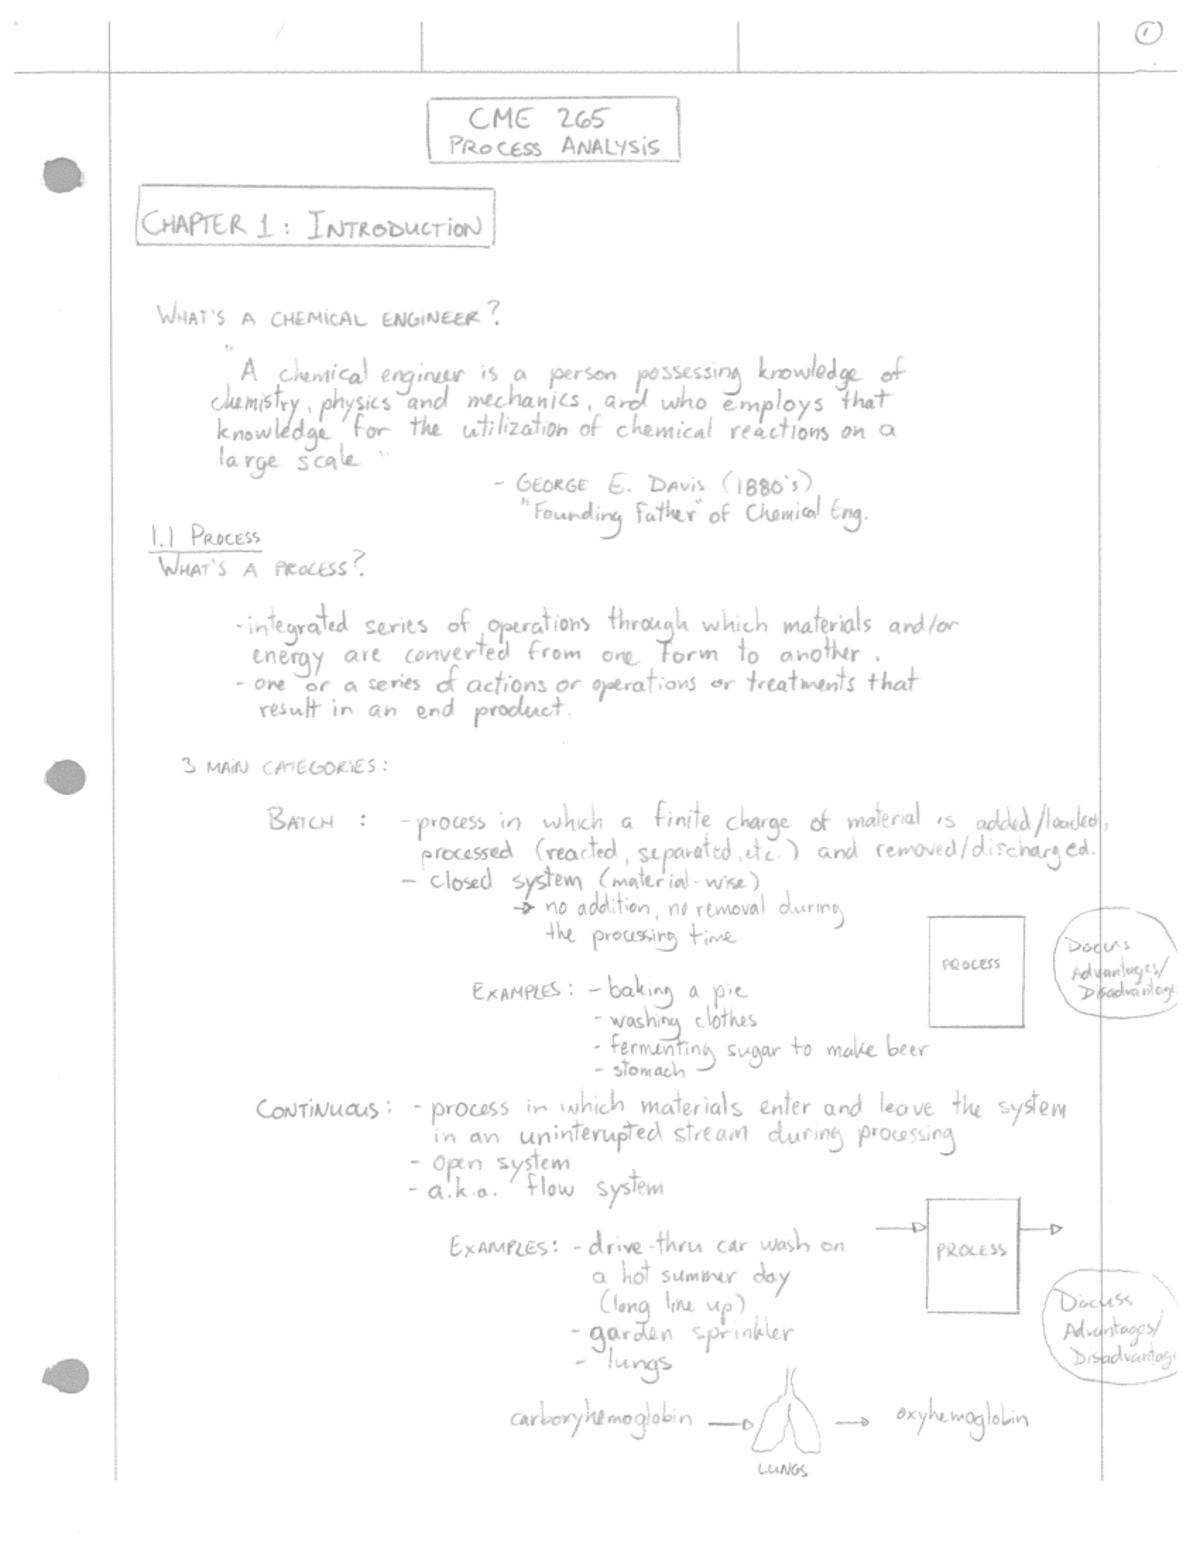 1
CME 265
PROCESS ANALYSIS
CHAPTER 1: INTRODUCTION
WHAT'S A CHEMICAL ENGINEER?
"A chemical engineer is a person possessing knowledge of
chemistry, physics and mechanics, and who employs that
knowledge for the utilization of chemical reactions on a
large scale"
- GEORGE E. DAVIS (1880's)
"Founding Father" of Chemical Eng.
1.1 PROCESS
WHAT'S A PROCESS?
- integrated series of operations through which materials and/or
energy are converted from one form to another.
- one or a series of actions or operations or treatments that
result in an end product.
3 MAIN CATEGORIES:
BATCH: - process in which a finite charge of material is added/loaded,
processed (reacted, separated, etc.) and removed/discharged.
- closed system (material-wise)
→ no addition, no removal during
the processing time
PROCESS
Discuss
Advantages/
Disadvantage
EXAMPLES: - baking a pie
- washing clothes
- fermenting sugar to make beer
- stomach
CONTINUOUS: - process in which materials enter and leave the system
in an uninterupted stream during processing
- open system
- a.k.a. flow system
PROCESS
EXAMPLES: - drive-thru car wash on
a hot summer day
(long line up)
- garden sprinkler
- lungs
Discuss
Advantages/
Disadvantag
carboxyhemoglobin → → oxyhemoglobin
LUNGS